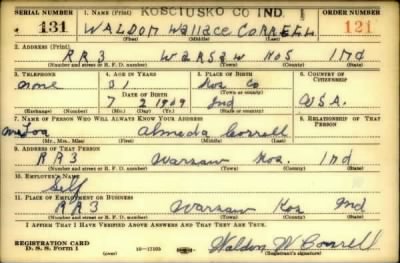 SERIAL NUMBER 1. NAME (Print) KOSCIUSKO CO IND. 1 ORDER NUMBER
131 WALDON Wallace CORRELL 121
(First) (Middle) (Last)
2. ADDRESS (Print)
RR3 Warsaw Kos Ind
(Number and street or R. F. D. number) (Town) (County) (State)
3. TELEPHONE 4. AGE IN YEARS 5. PLACE OF BIRTH 6. COUNTRY OF CITIZENSHIP
none 31 Kos Co
DATE OF BIRTH (Town or county)
7 2 1909 Ind U.S.A.
(Exchange) (Number) (Mo.) (Day) (Yr.) (State or country)
7. NAME OF PERSON WHO WILL ALWAYS KNOW YOUR ADDRESS 8. RELATIONSHIP OF THAT PERSON
Almeda Correll
(Mr., Mrs., Miss) (First) (Middle) (Last)
9. ADDRESS OF THAT PERSON
RR3 Warsaw Kos. Ind
(Number and street or R. F. D. number) (Town) (County) (State)
10. EMPLOYER'S NAME
Self
11. PLACE OF EMPLOYMENT OR BUSINESS
RR3 Warsaw Kos Ind
(Number and street or R. F. D. number) (Town) (County) (State)
I AFFIRM THAT I HAVE VERIFIED ABOVE ANSWERS AND THAT THEY ARE TRUE.
REGISTRATION CARD
D. S. S. Form 1 16-17105 Waldon W Correll
(Registrant's signature)